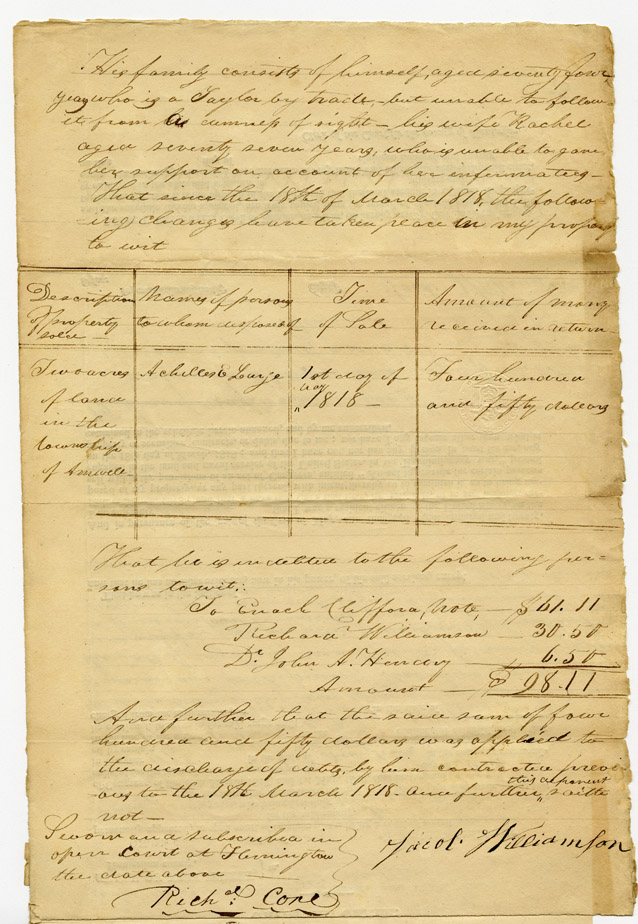 His family consists of himself, aged seventy four
years who is a Taylor by trade, but unable to follow
it from dimness of sight — his wife Rachel
aged seventy seven years, who is unable to gane
her support on account of her infirmaties —
That since the 18th of March 1818, the follow-
ing changes have taken place in my property
to wit
Description
of property
sold —
Names of persons
to whom disposed of
Time
of Sale
Amount of money
received in return
Two acres
of land
in the
township
of Amwell
Achilles
1st day of
1818 —
Four hundred
and fifty dollars
That he is indebted to the following per-
sons to wit;
To Enoch Clifford, Note, — $61.11
Richard Williamson — 30.50
Dr John A. Hendry — 6.50
Amount — $ 98.11
And further that the said sum of four
hundred and fifty dollars was applied to
the discharge of debts, by him contracted previ
ous to the 18th March 1818. And further this deponent saith
not —
Sworn and subscribed in
open Court at Flemington
the date above —
Jacob Williamson
Richd. Cone